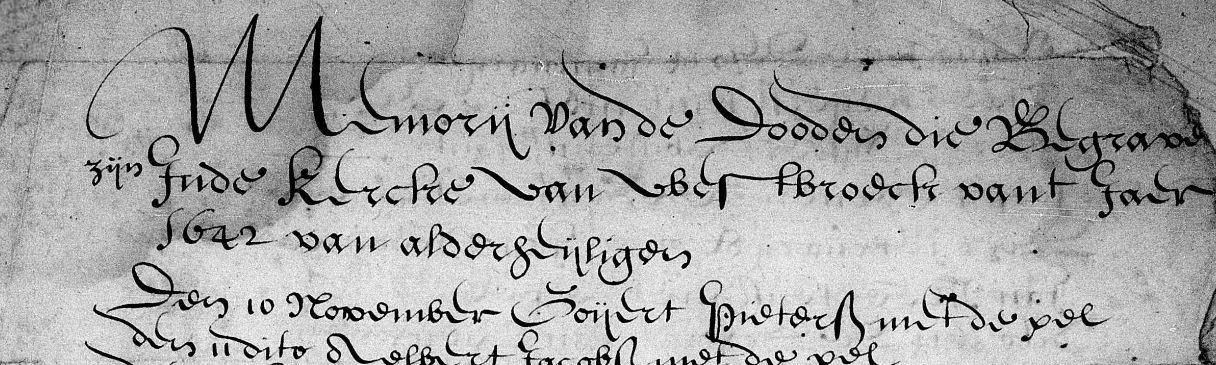 Memorij Vande Dooden die Begrave
zijn Inde Kercke van wes tbroeck vant Jaer
1642 van alderheijligen
Den 10 November Goijert Pieterß met de pel
den 11 dito Aelbert Jacobß met de pel